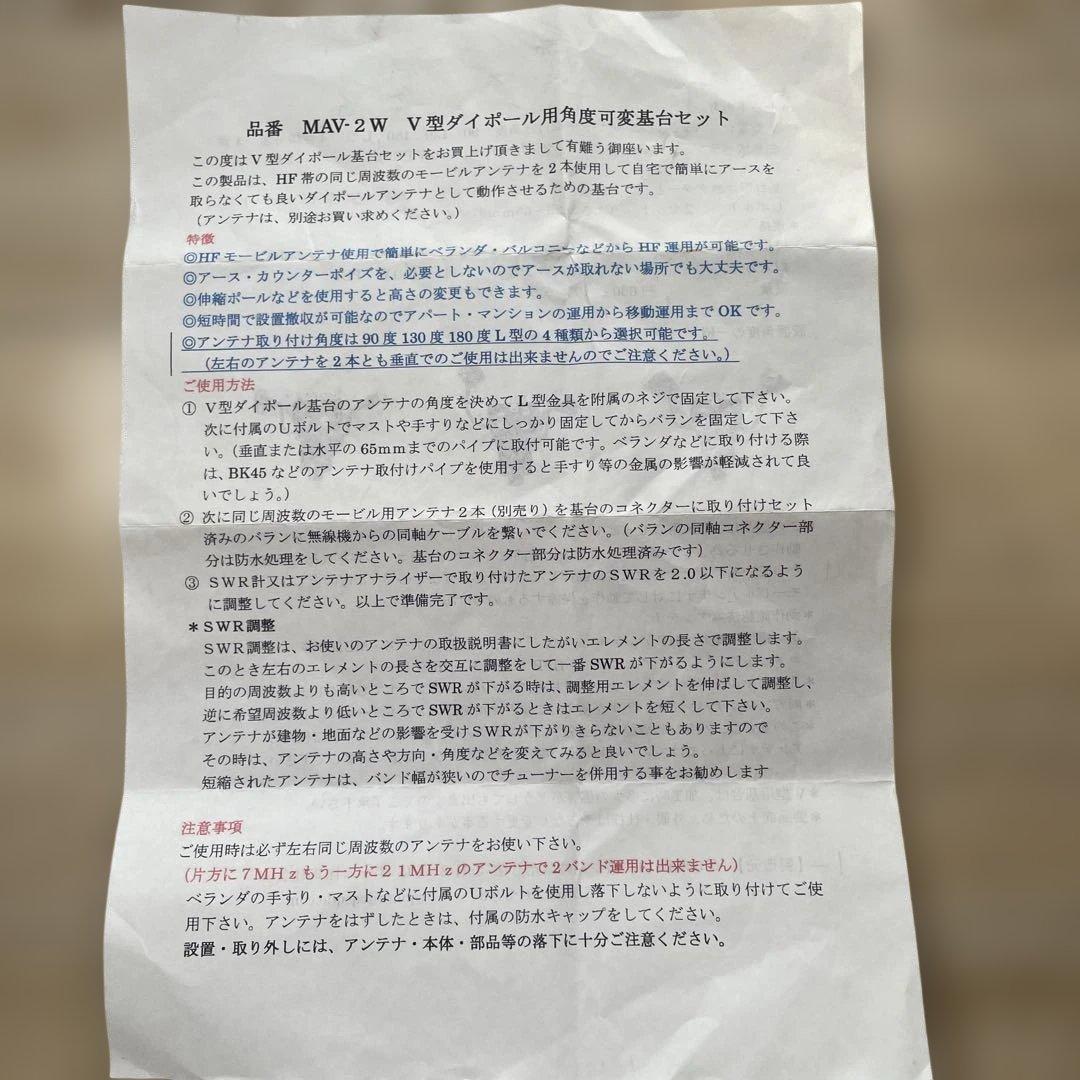 品番　MAV-２W　V 型ダイポール用角度可変基台セット
この度は V 型ダイポール基台セットをお買上げ頂きまして有難う御座います。
この製品は、HF 帯の同じ周波数のモービルアンテナを 2 本使用して自宅で簡単にアースを
取らなくても良いダイポールアンテナとして動作させるための基台です。
（アンテナは、別途お買い求めください。）
特徴
◎HF モービルアンテナ使用で簡単にベランダ・バルコニーなどから HF 運用が可能です。
◎アース・カウンターポイズを、必要としないのでアースが取れない場所でも大丈夫です。
◎伸縮ポールなどを使用すると高さの変更もできます。
◎短時間で設置撤収が可能なのでアパート・マンションの運用から移動運用まで OK です。
◎アンテナ取り付け角度は 90 度 130 度 180 度 L 型の 4 種類から選択可能です。
（左右のアンテナを 2 本とも垂直でのご使用は出来ませんのでご注意ください。）
ご使用方法
① Ｖ型ダイポール基台のアンテナの角度を決めて L 型金具を附属のネジで固定して下さい。
次に付属のＵボルトでマストや手すりなどにしっかり固定してからバランを固定して下さ
い。（垂直または水平の 65mm までのパイプに取付可能です。ベランダなどに取り付ける際
は、BK45 などのアンテナ取付けパイプを使用すると手すり等の金属の影響が軽減されて良
いでしょう。）
② 次に同じ周波数のモービル用アンテナ２本（別売り）を基台のコネクターに取り付けセット
済みのバランに無線機からの同軸ケーブルを繋いでください。（バランの同軸コネクター部
分は防水処理をしてください。基台のコネクター部分は防水処理済みです）
③ ＳＷＲ計又はアンテナアナライザーで取り付けたアンテナのＳＷＲを 2.0 以下になるよう
に調整してください。以上で準備完了です。
＊ＳＷＲ調整
ＳＷＲ調整は、お使いのアンテナの取扱説明書にしたがいエレメントの長さで調整します。
このとき左右のエレメントの長さを交互に調整をして一番 SWR が下がるようにします。
目的の周波数よりも高いところで SWR が下がる時は、調整用エレメントを伸ばして調整し、
逆に希望周波数より低いところで SWR が下がるときはエレメントを短くして下さい。
アンテナが建物・地面などの影響を受けＳＷＲが下がりきらないこともありますので
その時は、アンテナの高さや方向・角度などを変えてみると良いでしょう。
短縮されたアンテナは、バンド幅が狭いのでチューナーを併用する事をお勧めします
注意事項
ご使用時は必ず左右同じ周波数のアンテナをお使い下さい。
（片方に７ＭＨｚもう一方に２１ＭＨｚのアンテナで 2 バンド運用は出来ません）
ベランダの手すり・マストなどに付属のＵボルトを使用し落下しないように取り付けてご使
用下さい。アンテナをはずしたときは、付属の防水キャップをしてください。
設置・取り外しには、アンテナ・本体・部品等の落下に十分ご注意ください。